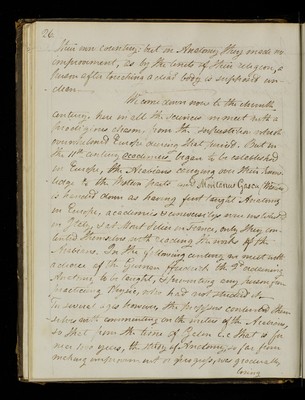 26.
their own country; but in Anatomy they made no
improvement, as by the tenets of their religion, a
person after touching a dead body is supposed un-
clean
We come down now to the eleventh
century. here in all the sciences we meet with a
prodigious chasm, from the superstition which
overwhelmed Europe during that period. But in
the 11th century academies began to be established
in Europe, the Arabians carrying over their know-
ledge to the Western parts and
is handed down as having first taught Anatomy
in Europe, academies & universities were instituted
in Italy, & at in France, only they con-
tented themselves with reading the works of the
Arabians. In the following century we meet with
of the Emperor Frederick the 2d
Anatomy to be taught, & preventing any person from
practicing Physic, who had not studied it
In several ages however the professors contented them
selves with commenting on the works of the Arabians,
so that from the time of Galen i.e. that is for
years, the study of Anatomy so far from
making improvement or progress, was generally
losing